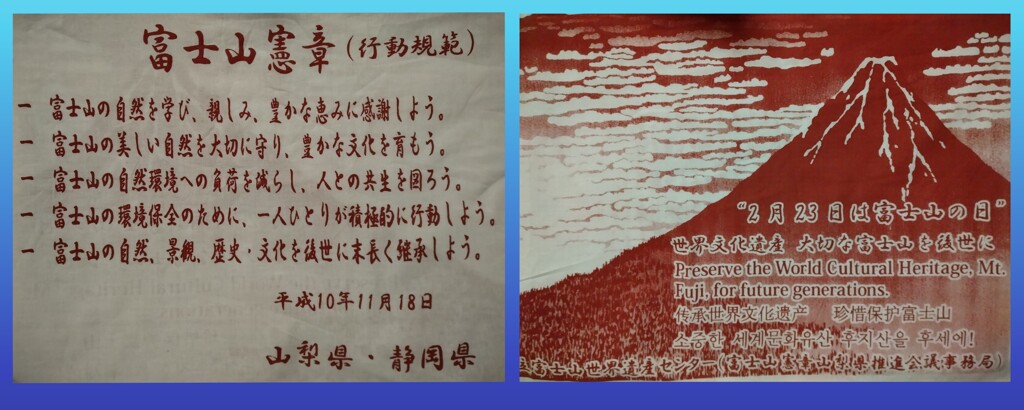 富士山憲章(行動規範)
一 富士山の自然を学び、親しみ、豊かな恵みに感謝しよう。
一 富士山の美しい自然を大切に守り、豊かな文化を育もう。
一 富士山の自然環境への負荷を減らし、人との共生を図ろう。
一 富士山の環境保全のために、一人ひとりが積極的に行動しよう。
一 富士山の自然、景観、歴史・文化を後世に末長く継承しよう。
平成10年11月18日
山梨県・静岡県
“2月23日は富士山の日”
世界文化遺産 大切な富士山を後世に
Preserve the World Cultural Heritage, Mt.
Fuji, for future generations.
传承世界文化遗产 珍惜保护富士山
소중한 세계문화유산 후지산을 후세에!
富士山世界遺産センター(富士山憲章山梨県推進会議事務局)